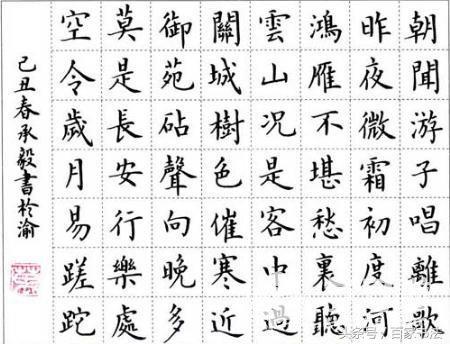 朝聞游子唱離歌
昨夜微霜初度河
鴻雁不堪愁裏聽
雲山況是客中過
關城樹色催寒近
御苑砧聲向晚多
莫是長安行樂處
空令歲月易蹉跎
己丑春承毅書於渝
头条号/百家书法